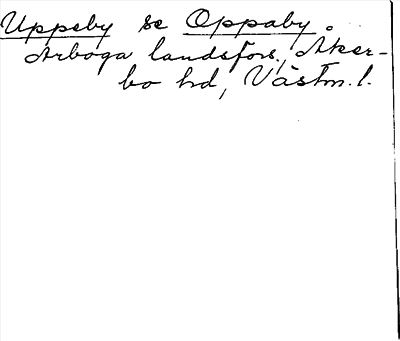 Uppeby se Oppaby.
Arboga landsförs., Åker-
bo hd, Västm. l.